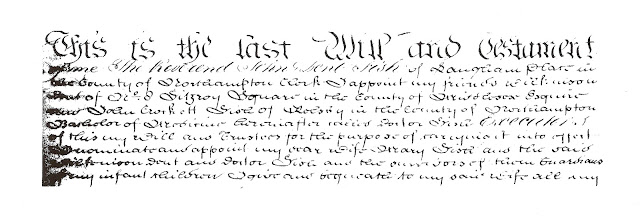 This is the last Will and Testament
of me The Reverend John Dent Fish of Langham Place in
the County of Northampton Clerk I appoint my friends
Dent of Fitzroy Square in the County of Middlesex Esquire
and John Crockett Fish of in the County of Northampton
Bachelor of Medicine hereinafter called Doctor Fish Executors
of this my Will and Trustees for the purpose of carrying it into effect
I nominate and appoint my dear Wife Mary Fish and the said
Dent and Doctor Fish and the survivors of them Guardians
of my infant children I give and bequeath to my said Wife all my